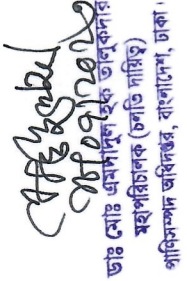 ২৮/০৭/২০২০
ডাঃ মোঃ এমদাদুল হক তালুকদার
মহাপরিচালক (চলতি দায়িত্ব)
প্রাণিসম্পদ অধিদপ্তর, বাংলাদেশ, ঢাকা।